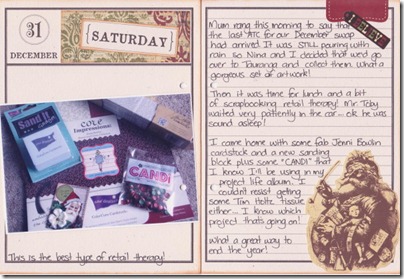 31
DECEMBER
SATURDAY
Sand it
core
Impressions
CANDI
This is the best type of retail therapy!
Mum rang this morning to say that
the last ATC for our December swap
had arrived. It was STILL pouring with
rain so Nina and I decided that we'd go
over to Tauranga and collect them. What a
gorgeous set of artwork!
Then it was time for lunch and a bit
of scrapbooking retail therapy! Mr Toby
waited very patiently in the car... ok he was
sound asleep!
I came home with some fab Jenni Bowlin
cardstock and a new sanding
block plus some "CANDI" that
I know I'll be using in my
project life album. I
couldn't resist getting
some Tim Holtz tissue
either... I know which
project that's going on!
What a great way to
end the year!